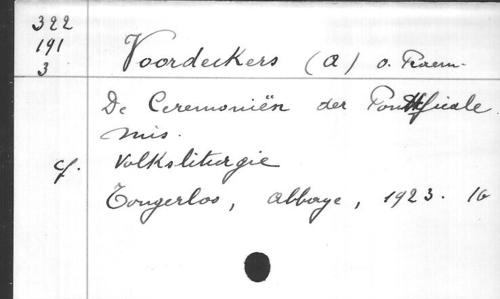 322
191
3
Voordeckers (A) o. Praem.
De Ceremoniën der Pontificale
mis.
cf. Volksliturgie
Tongerloo, abbaye, 1923. 16